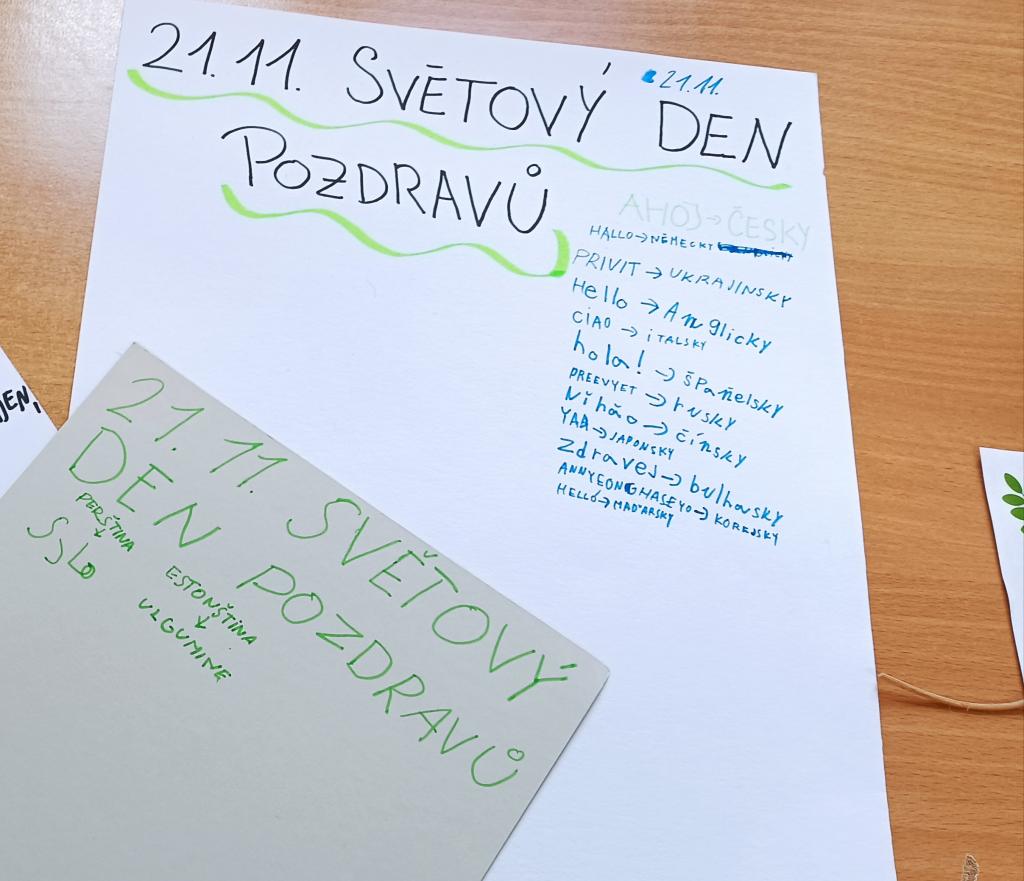 21.11. SVĚTOVÝ DEN
21.11.
POZDRAVŮ
AHOJ→ČESKY
HALLO→NĚMECKY
PRIVIT→UKRAJINSKY
Hello→Anglicky
CIAO→iTALSKY
hola!→španělsky
PREEVYET→rusky
Nihăo→čínsky
YAA→JAPONSKY
Zdravej→bulharsky
ANNYEONGHASEYO→KOREJSKY
HELLÓ→MAĎARSKY
21.11. SVĚTOVÝ
DEN POZDRAVŮ
PERŠTINA
↓
ESTONŠTINA
↓